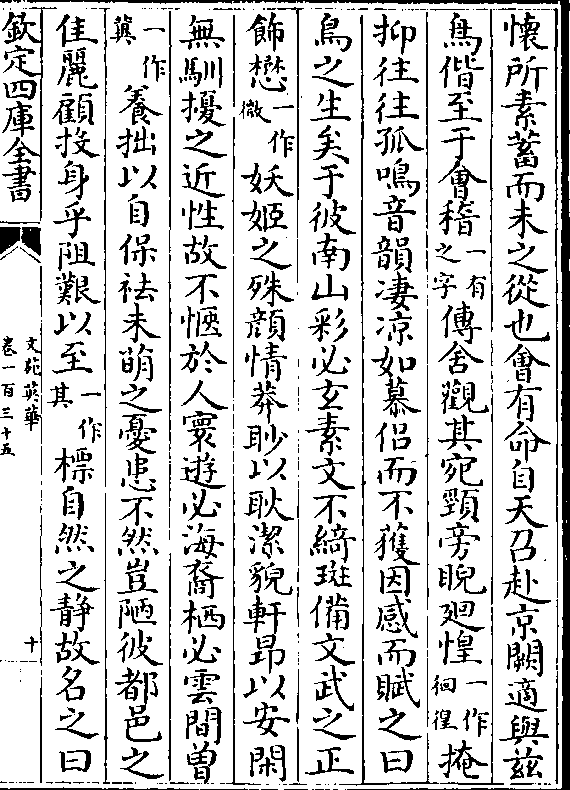 懷所素蓄而未之從也會有命自天召赴京闕適與茲
鳥偕至于會稽一有之字傳舍觀其宛頸旁睨廻惶一作徊徨掩
抑往往孤鳴音韻凄涼如慕侶而不獲因感而賦之曰
鳥之生矣于彼南山彩必玄素文不綺斑備文武之正
飾懋一作微妖姬之殊顔情莽眇以耿潔貌軒昂以安閑
無馴擾之近性故不愜於人寰遊必海裔栖必雲間曽
一作冀養拙以自保祛未萌之憂患不然豈陋彼都邑之
佳麗顧投身乎阻艱以至一作其標自然之静故名之曰
欽定四庫全書
文苑英華
卷一百三十五
十